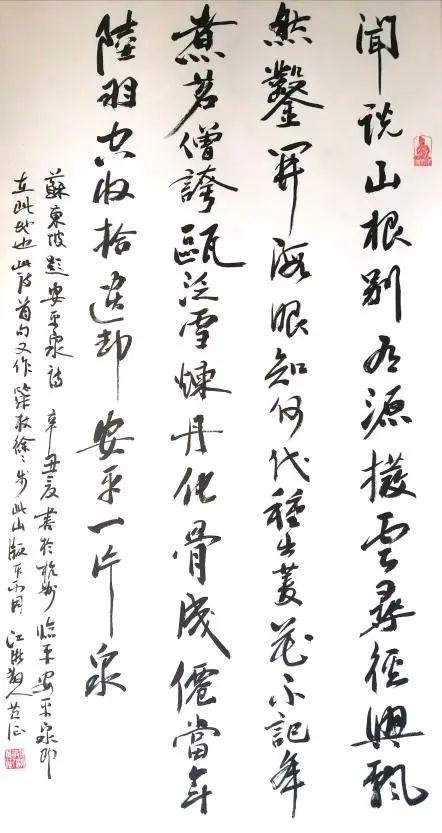 聞說山根別有源撥雲尋徑興飄
然鑿開海眼知何代種出菱花不記年
煮茗僧誇甌泛雪煉丹化骨成僊當年
陸羽空收拾遺却安平一片泉
蘇東坡題安平泉詩 辛丑夏書於杭州臨平安平泉即
在此地也此詩首句又作策杖徐々步此山版本不同 江浙散人